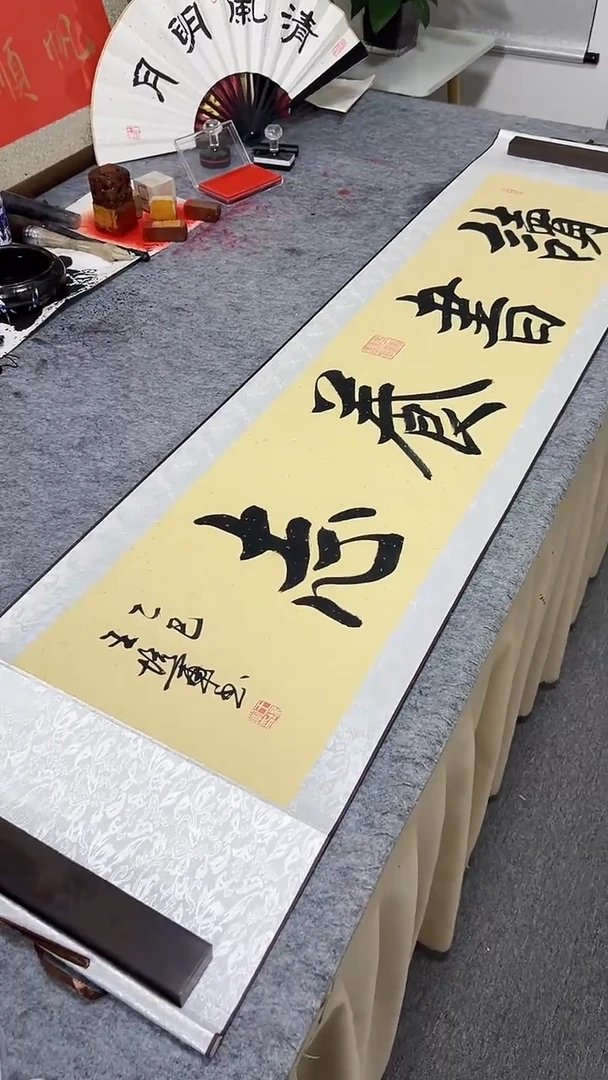 清風明月
讀書養志
乙巳